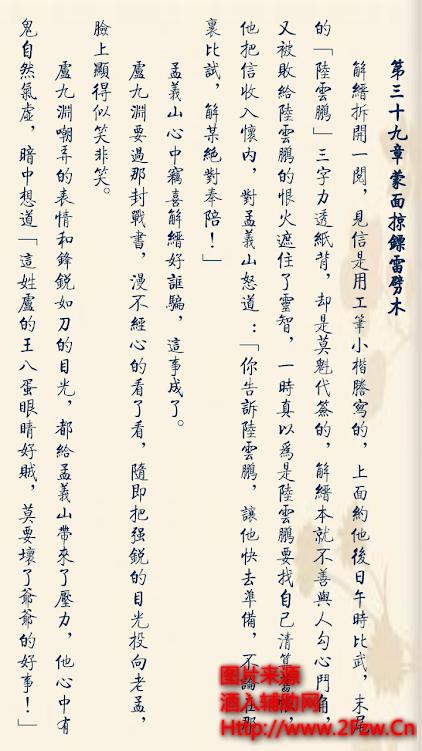 第三十九章 蒙面掠鏢雷劈木
解縉拆開一閱，見信是用工筆小楷謄寫的，上面約他後日午時比武，末尾
的「陸雲鵬」三字力透紙背，却是莫魁代簽的，解縉本就不善與人勾心鬥角，
又被敗給陸雲鵬的恨火遮住了靈智，一時真以爲是陸雲鵬要找自己清算
他把信收入懷內，對孟義山怒道：「你告訴陸雲鵬，讓他快去準備，不論在那
裏比試，解某絕對奉陪！」
孟義山心中竊喜解縉好誆騙，這事成了。
盧九淵要過那封戰書，漫不經心的看了看，隨即把强銳的目光投向老孟，
臉上顯得似笑非笑。
盧九淵嘲弄的表情和鋒銳如刀的目光，都給孟義山帶來了壓力，他心中有
鬼自然氣虛，暗中想道「這姓盧的王八蛋眼睛好賊，莫要壞了爺爺的好事！」
图片来源
酒入辅助网
Http://www.2Rzw.Cn